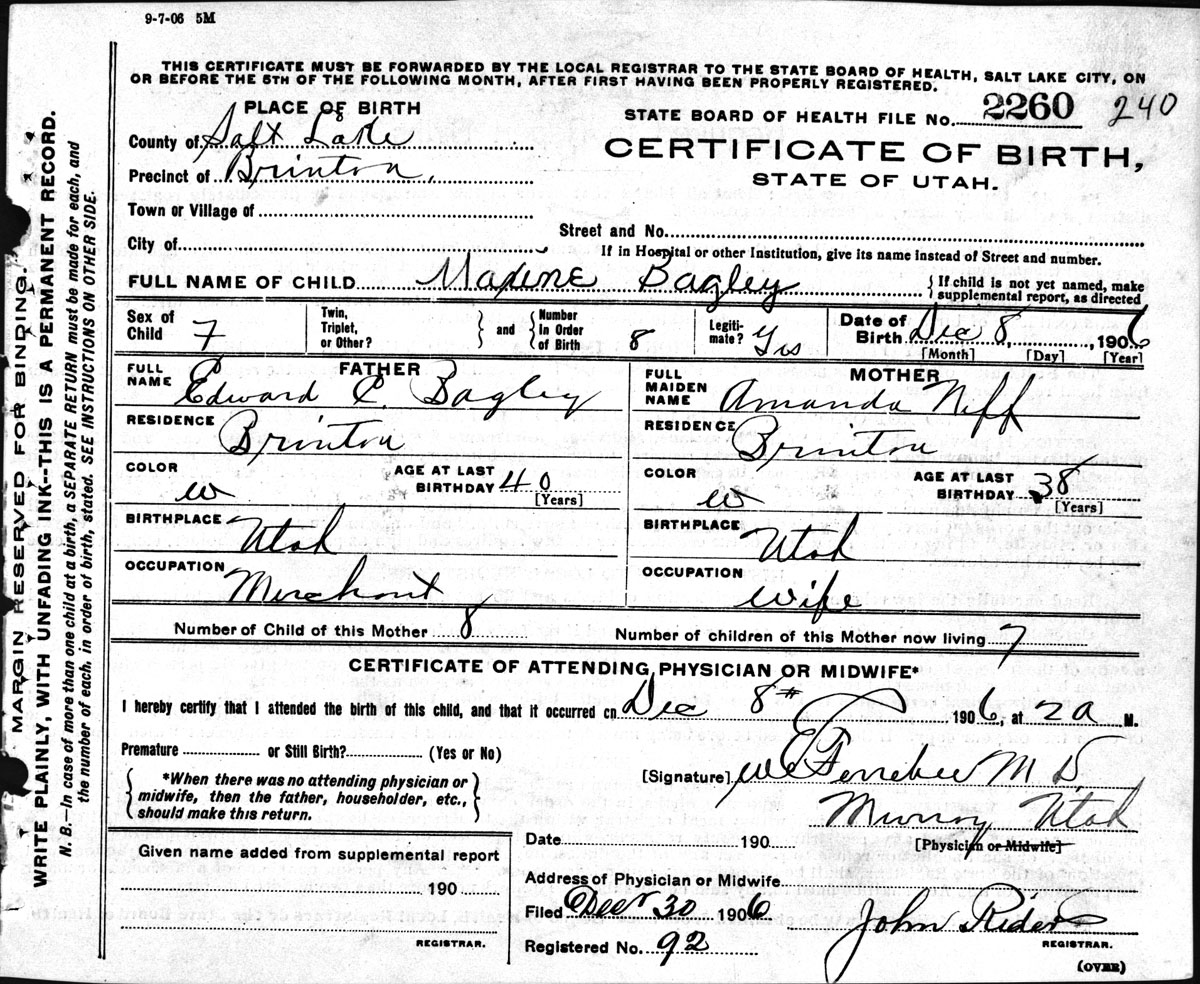 9-7-06 5M
THIS CERTIFICATE MUST BE FORWARDED BY THE LOCAL REGISTRAR TO THE STATE BOARD OF HEALTH, SALT LAKE CITY, ON
OR BEFORE THE 5TH OF THE FOLLOWING MONTH, AFTER FIRST HAVING BEEN PROPERLY REGISTERED.
PLACE OF BIRTH
County of Salt Lake
Precinct of Brinton,
Town or Village of
City of
STATE BOARD OF HEALTH FILE No. 2260 240
CERTIFICATE OF BIRTH,
STATE OF UTAH.
Street and No.
If in Hospital or other Institution, give its name instead of Street and number.
FULL NAME OF CHILD Maxine Bagley { If child is not yet named, make
supplemental report, as directed
Sex of Child F
Twin, Triplet, or Other? } and { Number In Order of Birth 8
Legiti-mate? Yes
Date of Birth Dec 8, 1906
[Month] [Day] [Year]
FATHER
FULL NAME Edward C. Bagley
RESIDENCE Brinton
COLOR w
AGE AT LAST BIRTHDAY 40
[Years]
BIRTHPLACE Utah
OCCUPATION Merchant
MOTHER
FULL MAIDEN NAME Amanda Neff
RESIDENCE Brinton
COLOR w
AGE AT LAST BIRTHDAY 38
[Years]
BIRTHPLACE Utah
OCCUPATION wife
Number of Child of this Mother 8 Number of children of this Mother now living 7
CERTIFICATE OF ATTENDING PHYSICIAN OR MIDWIFE*
I hereby certify that I attended the birth of this child, and that it occurred on Dec 8th 1906, at 2a M.
Premature or Still Birth? (Yes or No)
{ *When there was no attending physician or
midwife, then the father, householder, etc.,
should make this return. }
[Signature] Ferrebee M D
Murray Utah
[Physician or Midwife]
Date 190
Given name added from supplemental report
190
REGISTRAR.
Address of Physician or Midwife
Filed Decr 30 1906
Registered No. 92
John Rider
REGISTRAR.
(OVER)
MARGIN RESERVED FOR BINDING.
WRITE PLAINLY, WITH UNFADING INK--THIS IS A PERMANENT RECORD.
N. B.—In case of more than one child at a birth, a SEPARATE RETURN must be made for each, and
the number of each, in order of birth, stated. SEE INSTRUCTIONS ON OTHER SIDE.